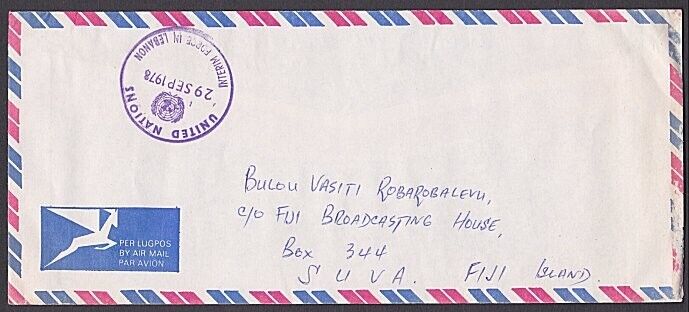 UNITED NATIONS
INTERIM FORCE IN LEBANON
29 SEP 1978
BULOU VASITI ROBAROBALEVU,
C/O FIJI BROADCASTING HOUSE,
BOX 344
SUVA. FIJI ISLAND.
PER LUGPOS
BY AIR MAIL
PAR AVION